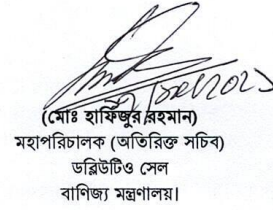 (মোঃ হাফিজুর রহমান)
মহাপরিচালক (অতিরিক্ত সচিব)
ডব্লিউটিও সেল
বাণিজ্য মন্ত্রণালয়।